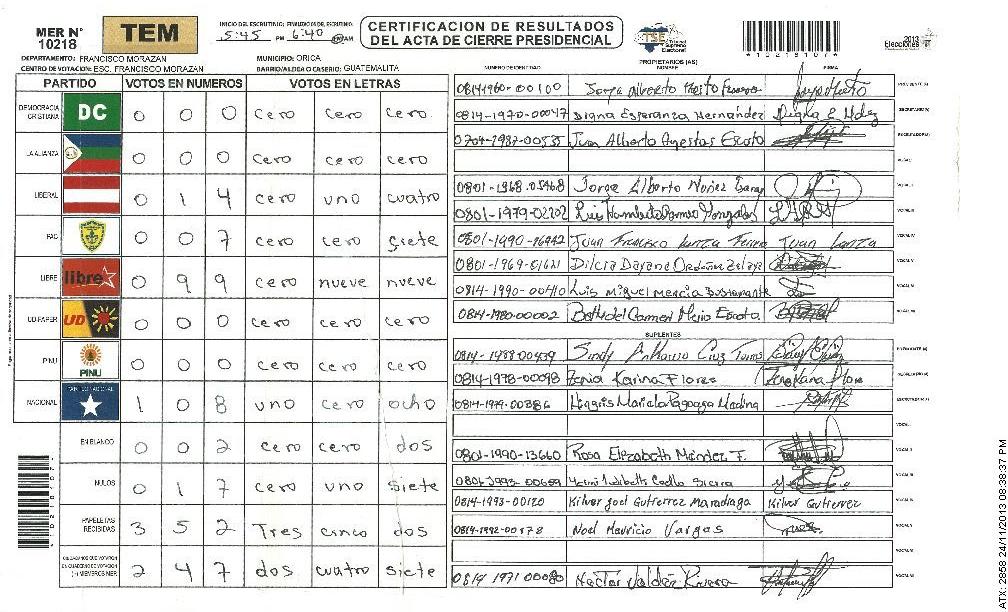 MER N° 10218
TEM
INICIO DEL ESCRUTINIO: 5:45 PM FINALIZACION DEL ESCRUTINIO: 6:40
CERTIFICACION DE RESULTADOS
DEL ACTA DE CIERRE PRESIDENCIAL
TSE
Tribunal Supremo Electoral
2013
Elecciones
DEPARTAMENTO: FRANCISCO MORAZAN
MUNICIPIO: ORICA
CENTRO DE VOTACION: ESC. FRANCISCO MORAZAN
BARRIO/ALDEA O CASERIO: GUATEMALITA
PARTIDO VOTOS EN NUMEROS VOTOS EN LETRAS
DEMOCRACIA CRISTIANA DC 0 0 0 cero cero cero
LA ALIANZA 0 0 0 cero cero cero
LIBERAL 0 1 4 cero uno cuatro
PAC 0 0 7 cero cero siete
LIBRE libre 0 9 9 cero nueve nueve
UD-FAPER UD 0 0 0 cero cero cero
PINU PINU 0 0 0 cero cero cero
NACIONAL PARTIDO NACIONAL 1 0 8 uno cero ocho
EN BLANCO 0 0 2 cero cero dos
NULOS 0 1 7 cero uno siete
PAPELETAS RECIBIDAS 3 5 2 Tres cinco dos
CIUDADANOS QUE VOTARON EN CUADERNO DE VOTACION (+) MIEMBROS MER 2 4 7 dos cuatro siete
PROPIETARIOS (AS)
NUMERO DE IDENTIDAD NOMBRE FIRMA
0814-1960-00100 Jorge Alberto
0814-1970-00047 Diana Esperanza Hernández
0704-1987-00535 Juan Alberto Ayestas Escoto
0801-1968-05468 Jorge Alberto Nuñez
0801-1979-02202 Luis Humberto
0801-1990-16442 Juan Francisco Juan
0801-1969-01621 Dilcia Dayana Ordoñez Zelaya
0814-1990-00410 Luis Miguel Mencia Bustamante
0814-1980-00002 del Carmen Escoto
SUPLENTES
0814-1988-00439 Sindy Cruz
0814-1978-00098 Xenia Karina Flores
0814-1979-00386 Mariela Pagoaga Medina
0801-1990-13660 Rosa Elizabeth Méndez F.
Lizbeth Coello Sierra
0814-1993-00120 Kilver Joel Gutierrez Maradiaga Kilver Gutierrez
0814-1992-00578 Noel Mauricio Vargas
0814 1971 00080 Hector Rivera
ATX: 2958 24/11/2013 08:38:37 PM